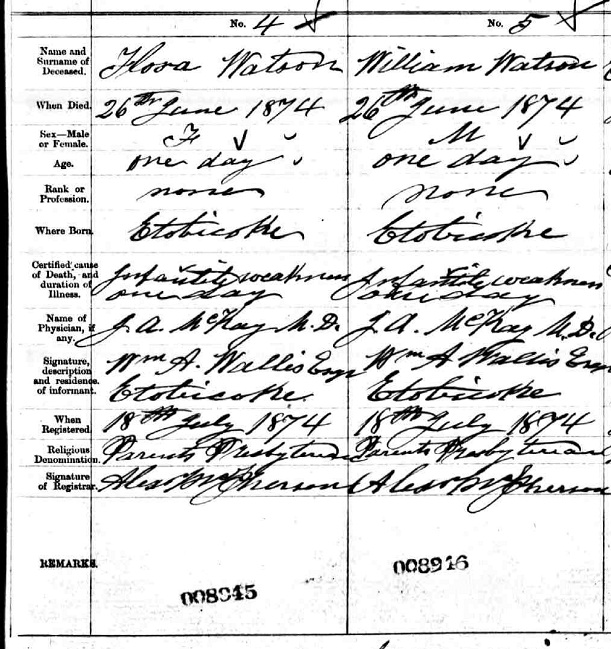 No. 4 No. 5
Name and Surname of Deceased. Flora Watson William Watson
When Died. 26th June 1874 26th June 1874
Sex—Male or Female. F M
Age. one day one day
Rank or Profession. none none
Where Born. Etobicoke Etobicoke
Certified cause of Death, and duration of Illness. Infantile weakness one day Infantile weakness one day
Name of Physician, if any. J. A. McKay M.D. J. A. McKay M.D.
Signature, description and residence of informant. Wm A. Wallis Esqr Etobicoke. Wm A Wallis Esqr Etobicoke
When Registered. 18th July 1874 18th July 1874
Religious Denomination. Parents Presbyterian Parents Presbyterian
Signature of Registrar. Alex McPherson Alex McPherson
REMARKS.
008945 008946